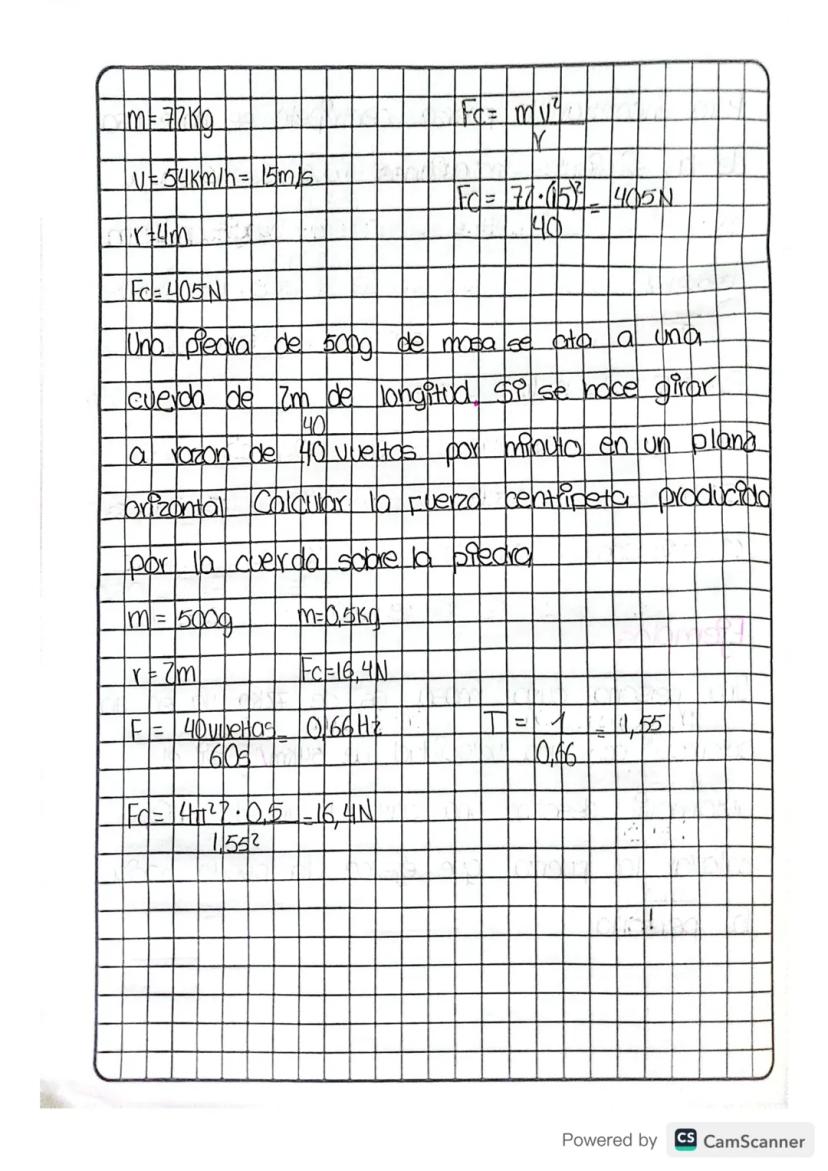 m=72Kg
Fc= mv²
r
V=54Km/h= 15m/s
Fc= 72·(15)² = 405N
40
r=4m
Fc=405N
Una piedra de 500g de masa se ata a una
cuerda de 2m de longitud. Si se hace girar
40
a razon de 40 vueltas por minuto en un plano
orizontal Calcular la fuerza centripeta producida
por la cuerda sobre la piedra
m= 500g m=0,5Kg
r=2m Fc=16,4N
F= 40vueltas = 0,66Hz T= 1 = 1,55
60s 0,66
Fc= 4π²2·0,5 =16,4N
1,55²
Powered by CS CamScanner